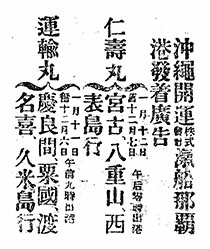 沖繩開運株式會社滊船那覇
港發着廣吿
仁壽丸
一月十二日
舊十二月七日
午后
宮古、八重山、西
表島行
運輸丸
一月十一日
舊十二月六日
午前九時出港
慶良間、粟國、渡
名喜、久米島行